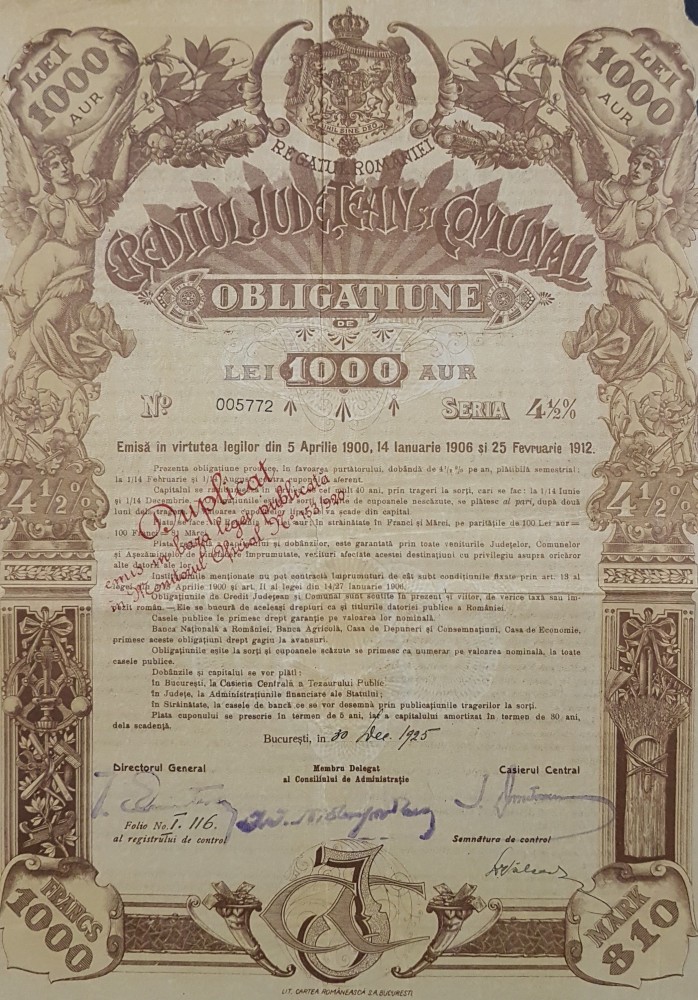 LEI
1000
AUR
LEI
1000
AUR
NIHIL SINE DEO
REGATUL ROMÂNIEI
CREDITUL JUDEȚEAN ȘI COMUNAL
OBLIGAȚIUNE
DE
LEI 1000 AUR
No 005772 SERIA 4½%
4½% 4½%
Emisă în virtutea legilor din 5 Aprilie 1900, 14 Ianuarie 1906 și 25 Fevruarie 1912.
Prezenta obligațiune produce, în favoarea purtătorului, dobândă de 4½% pe an, plătibilă semestrial:
la 1/14 Februarie și 1/14 August cuponului aferent.
Capitalul se în cel mult 40 ani, prin trageri la sorți, cari se fac: la 1/14 Iunie
și 1/14 Decembrie. Obligațiunile eșite la sorți, cu cupoanele nescăzute, se plătesc al pari, după două
luni dela tragere. Valoarea cupoanelor lipsă va scade din capital.
Plata se face: în aur; în străinătate în Franci și Mărci, pe paritățile de 100 Lei aur =
100 Fr Mărci
Plata și dobânzilor, este garantată prin toate veniturile Județelor, Comunelor
și Așezămintelor de împrumutate, venituri afectate acestei destinațiuni cu privilegiu asupra oricăror
alte datorii ale lor.
Instituțiile menționate nu pot contracta împrumuturi de cât subt condițiunile fixate prin art. 13 al
legei Aprilie 1900 și art. II al legei din 14/27 Ianuarie 1906.
Obligațiunile de Credit Județean și Comunal sunt scutite în prezent și viitor, de verice taxă sau im-
pozit român. — Ele se bucură de aceleași drepturi ca și titlurile datoriei publice a României.
Casele publice le primesc drept garanție pe valoarea lor nominală.
Banca Națională a României, Banca Agricolă, Casa de Depuneri și Consemnațiuni, Casa de Economie,
primesc aceste obligațiuni drept gagiu la avansuri.
Obligațiunile eșite la sorți și cupoanele scăzute se primesc ca numerar pe valoarea nominală, la toate
casele publice.
Dobânzile și capitalul se vor plăti:
în București, la Casieria Centrală a Tezaurului Public
în Județe, la Administrațiunile financiare ale Statului;
în Străinătate, la casele de bancă ce se vor desemna prin publicațiunile tragerilor la sorți.
Plata cuponului se prescrie în termen de 5 ani, iar a capitalului amortizat în termen de 30 ani,
dela scadență.
Duplicat
emis în baza legei publicată
în Monitorul Oficial No 153/924
București, în 30 Dec. 1925
Directorul General
Membru Delegat
al Consiliului de Administrație
Casierul Central
Folio No. I. 116.
al registrului de control
Semnătura de control
FRANCS
1000
MARK
810
LIT. CARTEA ROMÂNEASCĂ S.A. BUCUREȘTI